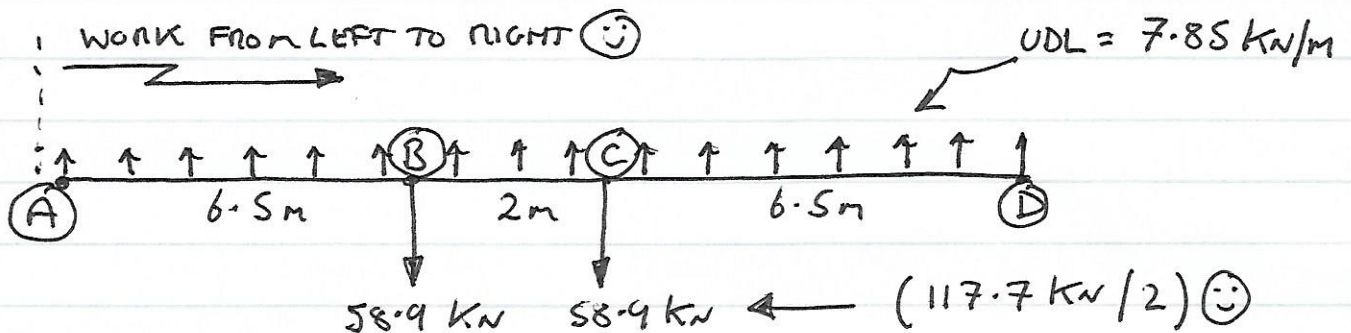 WORK FROM LEFT TO RIGHT
UDL = 7.85 KN/m
B C
A 6.5m 2m 6.5m D
58.9 KN 58.9 KN (117.7 KN/2)